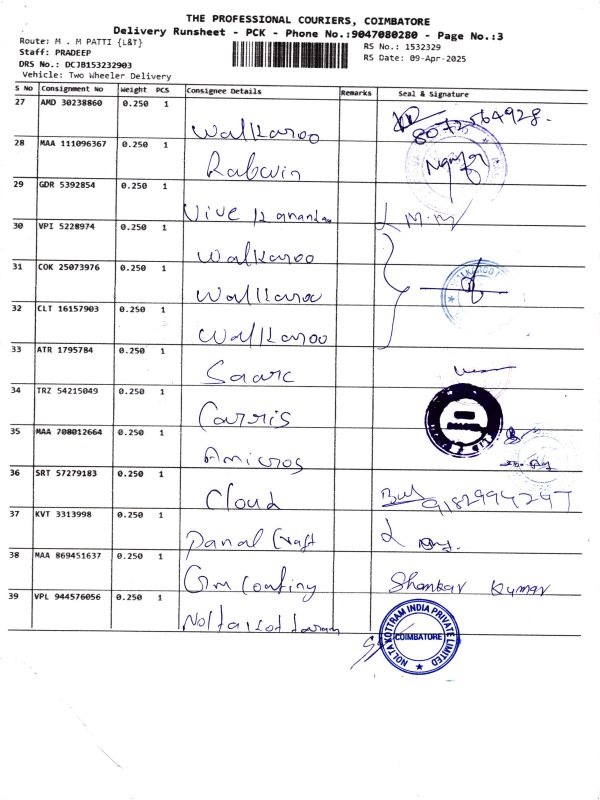 THE PROFESSIONAL COURIERS, COIMBATORE
Delivery Runsheet - PCK - Phone No.:9047080280 - Page No.:3
Route: M . M PATTI {L&T}
RS No.: 1532329
Staff: PRADEEP
RS Date: 09-Apr-2025
DRS No.: DCJB153232903
Vehicle: Two Wheeler Delivery
S No Consignment No Weight PCS Consignee Details Remarks Seal & Signature
27 AMD 30238860 0.250 1
Walkaroo 8072564928.
28 MAA 111096367 0.250 1
Rabwin
29 GDR 5392854 0.250 1
Vivekananda
30 VPI 5228974 0.250 1
Walkaroo
31 COK 25073976 0.250 1
Walkaroo
32 CLT 16157903 0.250 1
Walkaroo
33 ATR 1795784 0.250 1
Saarc
34 TRZ 54215049 0.250 1
Carris
35 MAA 708012664 0.250 1
Amicros
36 SRT 57279183 0.250 1
Cloud 9182994297
37 KVT 3313998 0.250 1
Panal Craft
38 MAA 869451637 0.250 1
Gm Coating Shankar Kumar
39 VPL 944576056 0.250 1
Noltakottaram
NOLTA KOTTRAM INDIA PRIVATE LIMITED
COIMBATORE